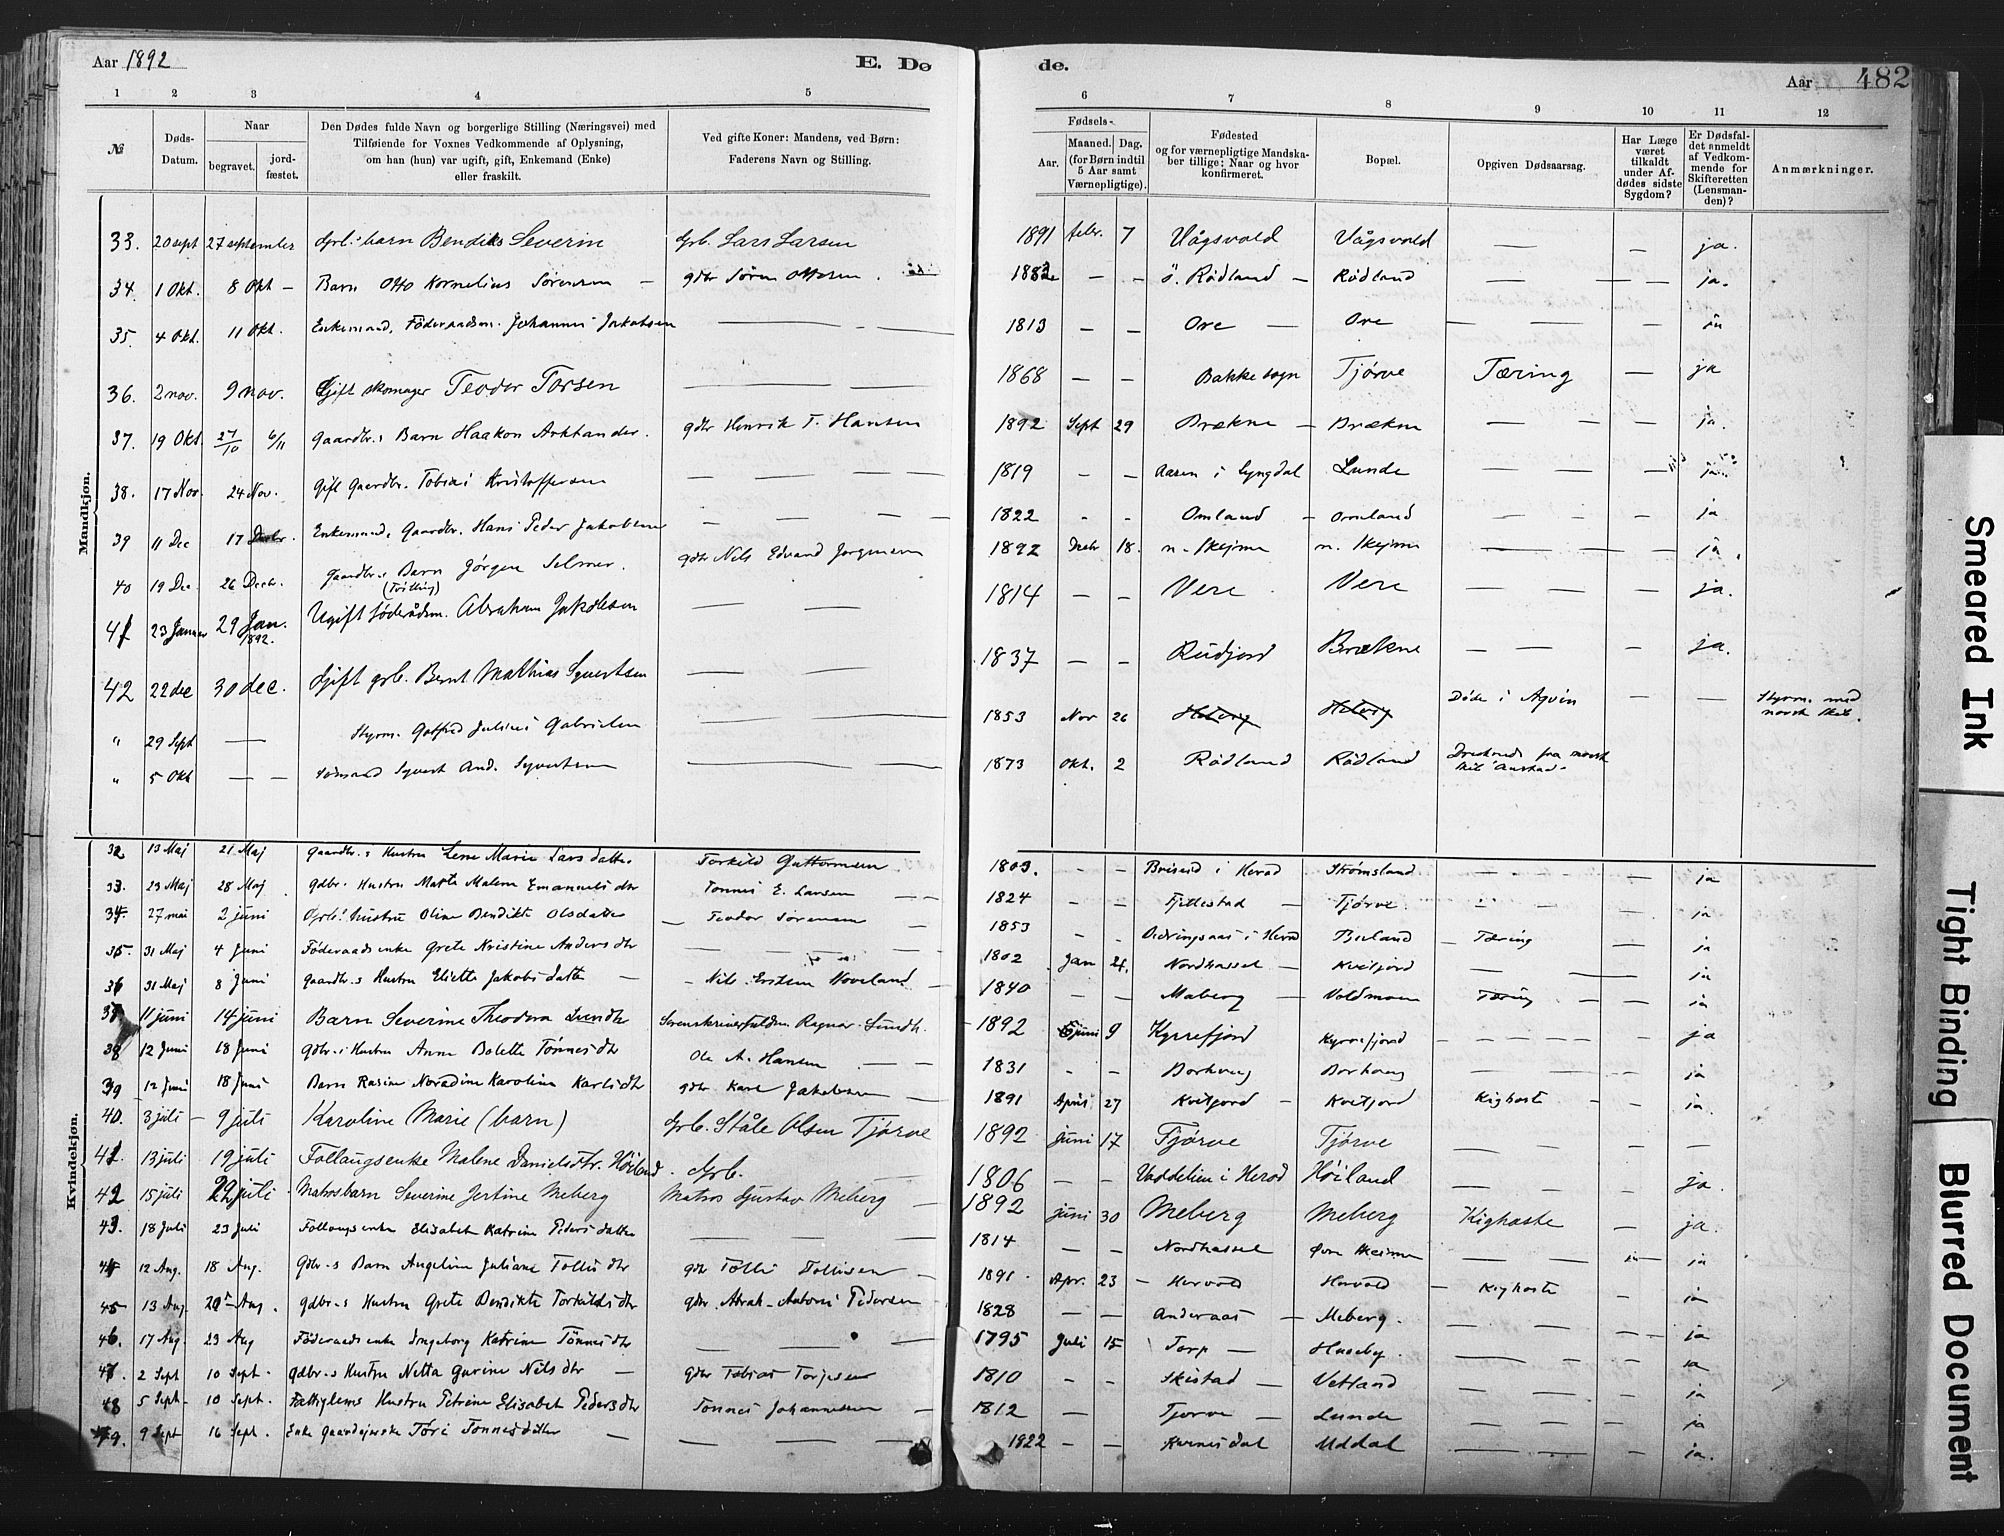 Aar 1892
E. Dø
de.
Aar 482
1 2 3 4 5 6 7 8 9 10 11 12
№
Døds-Datum.
Naar
begravet.
jord-fæstet.
Den Dødes fulde Navn og borgerlige Stilling (Næringsvei) med
Tilføiende for Voxnes Vedkommende af Oplysning,
om han (hun) var ugift, gift, Enkemand (Enke)
eller fraskilt.
Ved gifte Koner: Mandens, ved Børn:
Faderens Navn og Stilling.
Fødsels-
Aar.
Maaned. Dag.
(for Børn indtil
5 Aar samt
Værnepligtige).
Fødested
og for værnepligtige Mandska-
ber tillige: Naar og hvor
konfirmeret.
Bopæl.
Opgiven Dødsaarsag.
Har Læge
været
tilkaldt
under Af-
dødes sidste
Sygdom?
Er Dødsfal-
det anmeldt
af Vedkom-
mende for
Skifteretten
(Lensman-
den)?
Anmærkninger.
Mandkjøn.
33. 20 sept 27 september Grb.s barn Bendiks Severin Grb. Lars Larsen 1891 febr. 7 Vågsvold Vågsvold — — ja.
34. 1 Okt. 8 Okt — Barn Otto Kornelius Sørensen — gdbr Søren Ottosen — — ö. Rødland — Rødland — — ja.
35. 4 Okt. 11 Okt. Enkemand, Föderaadsm. Johannes Jakobsen — 1813 — — Ore — Ore — — ja
36. 2 nov. 9 nov. Gift skomager Teodor Torsen — 1868 — — Bakke sogn Tjørve Tæring — ja
37. 19 Okt. 27/10 6/11 Gaardbr.s Barn Haakon Arktander. gdbr Henrik T. Hansen 1892 Sept 29 Brækne — Brækne — — ja.
38. 17 Nov. 24 Nov. Gift Gaardbr. Tobias Kristoffersen — 1819 — — Aasen i Lyngdal Lunde — — ja.
39 11 Dec 17 Enkemand, Gaardbr. Hans Peder Jakobsen — 1822 — — Omland — Omland — — ja
40 19 Dec. 26 Decbr. Gaardbr.s Barn Jörgen Selmer. (Tvilling) gdbr Nils Edvard Jørgensen 1892 Decbr 18. n. Skejme n. Skejme — — ja.
41 23 Januar 29 Jan. 1892. Ugift föderådsm. Abraham Jakobsen — 1814 Vere Vere — — ja.
42 22 dec 30 dec. Gift grb. Bernt Mathias Syvertsen — 1837 — — Rudjord Brækne — — ja.
" 29 Sept — Styrm. Gotfred Julius Gabrielsen — 1853 Nov 26 Døde i — — Styrm. med norsk Skib.
" 5 Okt — — Sömand Syvert And. Syvertsen — 1873 Okt. 2 Rødland Rødland Druknede fra norsk Skib
Kvindekjøn.
32 13 Maj 21 Maj Gaardbr.s Hustru Lene Marie Larsdatter Torkild Guttormsen 1803. — — Briseid i Herad Strømsland — — ja
33. 23 Maj 28 Maj Gdbr. Hustru Marte Malene Emanuelsdtr Tønnes E. Larsen 1824 — — Fjeldestad — Tjørve. — — ja
34. 27 mai 2 juni Grb.s hustru Oline Bendikte Olsdatter — Teodor Sørensen — 1853 — — i Herad Birland — Tæring — ja
35. 31 Maj 4 Juni Föderaadsenke Grete Kristine Andersdtr — 1802 Jan Nordhassel — Kvitjord — — ja
36 31 Maj 8 Juni Gaardbr.s Hustru Eliette Jakobsdatter — Nils Hoveland — 1840 — — Maberg — Voldmoen Tæring — ja
37 11 juni 14 juni Barn Severine Theodora Lundtr Sorenskriverfuldm. Ragnar Lundh. — 1892 juni 9 Kyrrefjord Kyrrefjord — — ja
38 12 Juni 18 Juni gdbr.s Hustru Anne Bolette Tønnesdtr Ole A. Hansen — 1831 — — Borhoug Borhoug — — ja
39 12 Juni 18 Juni Barn Rasine Noradine Karolina Karlsdtr gdbr Karl Jakobsen — 1891 April 27 Kvitjord — Kvitjord Kighoste — ja.
40. 3 juli — 9 juli Karoline Marie (barn) Grb. Ståle Olsen Tjørve 1892 juni 17 Tjørve Tjørve — — —
41. 13 juli 19 juli Follaugsenke Malene Danielsdtr. Høiland. Grb. 1806 — — i Herad Høiland — — ja.
42 15 juli 22 juli Matrosbarn Severine Jertine Meberg Matros Gustav Meberg — 1892 juni 30 Meberg Meberg Kighoste — ja.
43. 18 Juli 23 Juli Follougsenke Elisabet Katrine Pedersdatter — 1814 — — Nordhassel Øvre Skeime — ja
44 12 Aug. 18 Aug. Gdbr.s Barn Angeline Juliane Tollisdtr gdbr Tolli Tollisen — 1891. Apr. 23 — Hervold Hervold — Kighoste — ja
45 13 Aug 20 Aug. gdbr.s Hustru Grete Bendikte Torkildsdtr gdbr. Abrah. Antoni Pedersen — 1828 — — Anderaas — Meberg. — — ja
46. 17 Aug. 23 Aug Föderaadsenke Ingeborg Katrine Tønnesdtr — 1795 Juli 15 Torp — Huseby. — — ja
47. 2 Sept 10 Sept. gdbr.s Hustru Netta Gurine Nilsdtr — gdbr Tobias Torjesen 1810 — — Skistad — Vetland — — ja
48 5 Sept. 10 Sept. Fattiglems Hustru Petrine Elisabet Pedersdtr Tønnes Johannessen — 1812 — — Tjørve — Lunde — — ja
49. 9 Sept 16 Sept. Enke Gaardejerske Töri Tønnesdatter — 1822 — — Uddal — — ja.
Smeared Ink
Tight Binding
Blurred Document